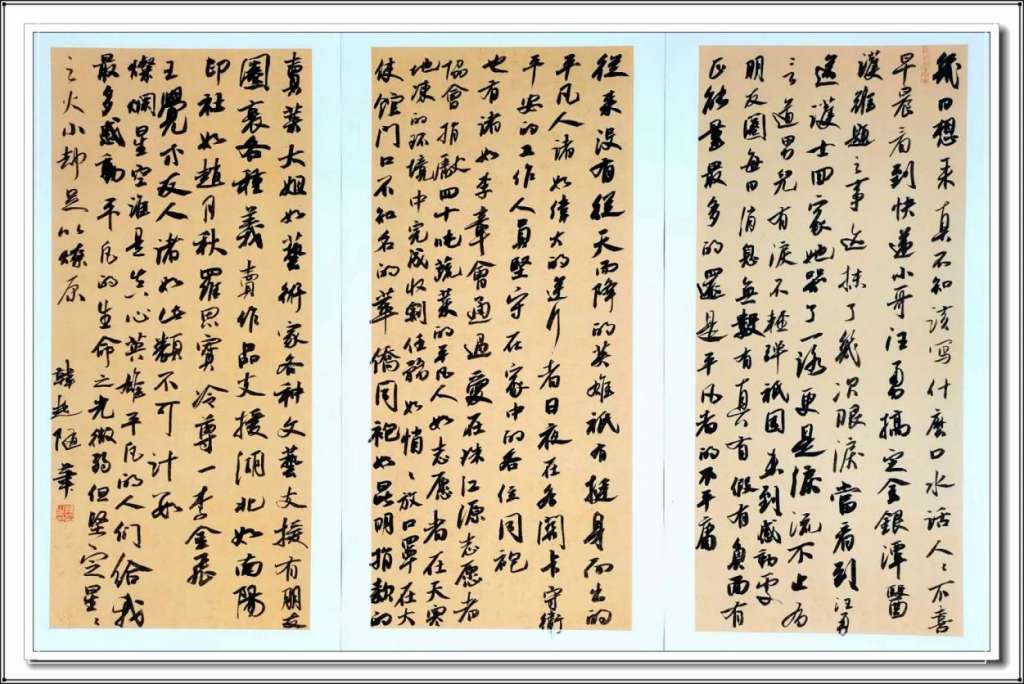 几日想来真不知该写什麽口水话人人不喜
早晨看到快递小哥汪勇搞定金银潭医
护难题之事边抹了几次眼泪当看到汪勇
送护士回家她哭了一路更是泪流不止为
之道男儿有泪不轻弹祇因未到感动处
朋友圈每日消息无数有真有假有负面有
正能量最多的还是平凡者的不平庸
从来没有从天而降的英雄祇有挺身而出的
平凡人诸如伟大的逆行者日夜在各关卡守卫
平安的工作人员坚守在家中的各位同袍
也有诸如李章会通过爱在珠江源志愿者
协会捐献四十吨蔬菜的平凡人如志愿者在天寒
地冻的环境中完成收割任务如悄悄放口罩在大
使馆门口不知名的华侨同袍如昆明捐款的
卖菜大姐如艺术家各种文艺支援有朋友
圈裹各种义卖作品支援湖北如南阳
印社如赵月秋罗思宝冷尊一李金飞
王觉亦友人诸如此类不可计数
灿烂星空谁是真心英雄平凡的人们给我
最多感动平凡的生命之光微弱但坚定星星
之火小却足以燎原
韩 随笔